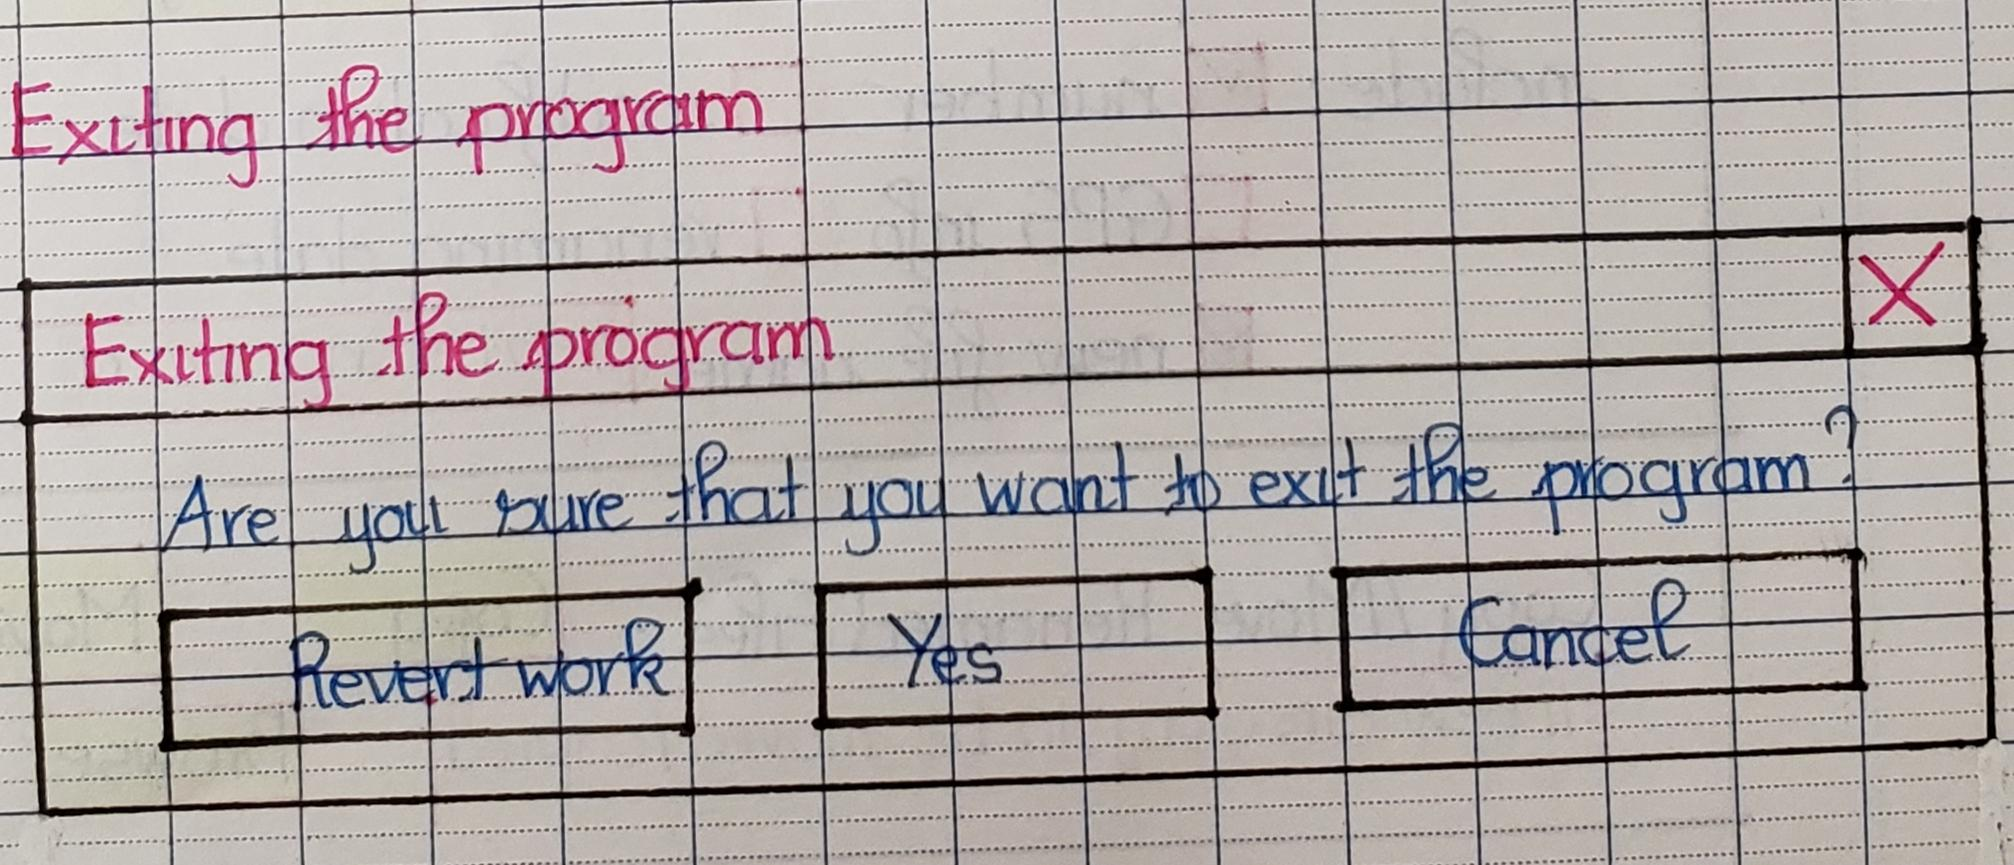 Exiting the program
Exiting the program X
Are you sure that you want to exit the program?
Revert work Yes Cancel